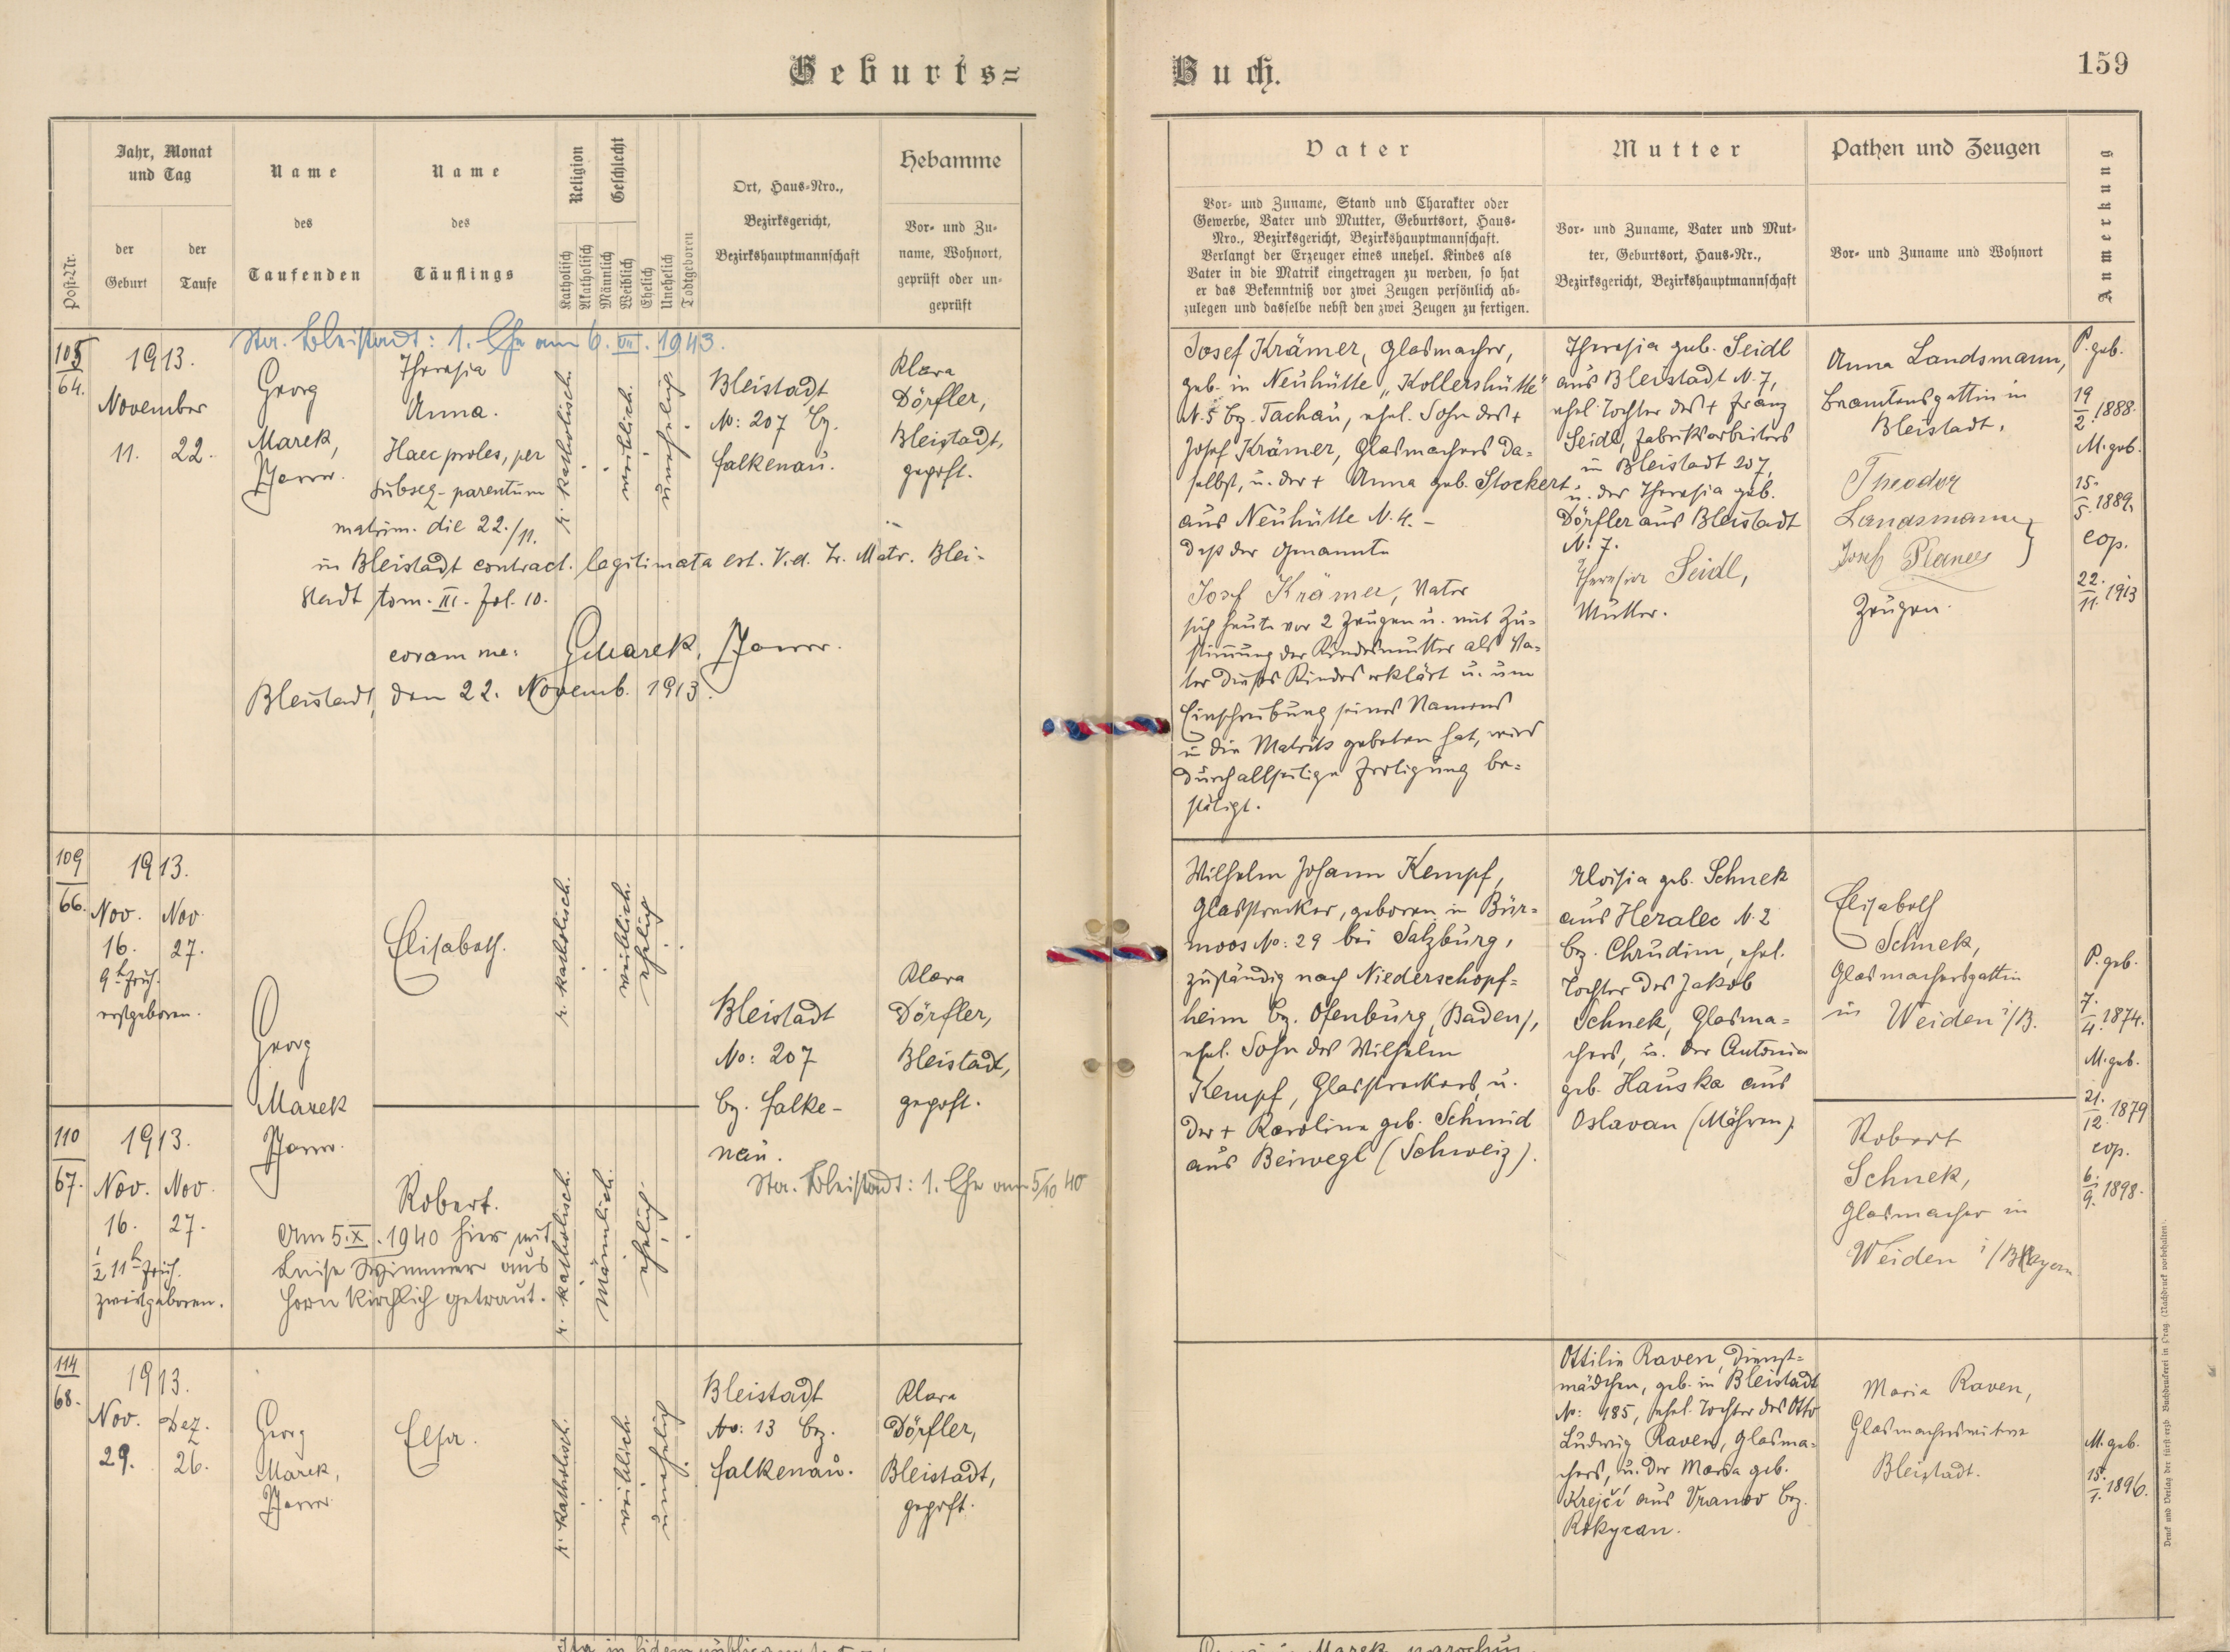 Geburts=
Buch.
159
Post-Nr.
Jahr, Monat
und Tag
der
Geburt
der
Taufe
Name
des
Taufenden
Name
des
Täuflings
Religion
Katholisch
Akatholisch
Geschlecht
Männlich
Weiblich
Ehelich
Unehelich
Todtgeboren
Ort, Haus-Nro.,
Bezirksgericht,
Bezirkshauptmannschaft
Hebamme
Vor- und Zu-
name, Wohnort,
geprüft oder un-
geprüft
Vater
Vor- und Zuname, Stand und Charakter oder
Gewerbe, Vater und Mutter, Geburtsort, Haus-
Nro., Bezirksgericht, Bezirkshauptmannschaft.
Verlangt der Erzeuger eines unehel. Kindes als
Vater in die Matrik eingetragen zu werden, so hat
er das Bekenntniß vor zwei Zeugen persönlich ab-
zulegen und dasselbe nebst den zwei Zeugen zu fertigen.
Mutter
Vor- und Zuname, Vater und Mut-
ter, Geburtsort, Haus-Nr.,
Bezirksgericht, Bezirkshauptmannschaft
Pathen und Zeugen
Vor- und Zuname und Wohnort
Anmerkung
Sta. Bleistadt: 1. Ehe am 6. VII. 1943.
64.
1913.
November
11. 22.
Georg
Marek,
Pfarrer.
Theresia
Anna.
Haec proles, per
subseq- parentum
matrim. die 22./11.
in Bleistadt contract. legitimata est. Vid. Tr. Matr. Blei-
stadt tom. III. fol. 10.
coram me: GMarek, Pfarrer.
Bleistadt, den 22. Novemb. 1913.
r. katholisch.
weiblich.
unehelich
Bleistadt
No: 207 Bz.
Falkenau.
Klara
Dörfler,
Bleistadt,
geprft.
Josef Krämer, Glasmacher,
geb. in Neuhütte „Kollershütte"
N. 5 Bz. Tachau, ehel. Sohn des +
Josef Krämer, Glasmachers da=
selbst, u. der + Anna geb. Stockert
aus Neuhütte N. 4. -
Daß der Genannte
Josef Krämer, Vater
sich heute vor 2 Zeugen u. mit Zu=
stimmung der Kindesmutter als Va=
ter dieses Kindes erklärt u. um
Einschreibung seines Namens
in die Matrik gebeten hat, wird
durch allseitige Fertigung be=
stätigt.
Theresia geb. Seidl
aus Bleistadt N. 7,
ehel. Tochter des + Franz
Seidl, Fabriksarbeiters
in Bleistadt 207,
u. der Theresia geb.
Dörfler aus Bleistadt
N. 7.
Theresia Seidl,
Mutter.
Anna Landsmann,
Beamtensgattin in
Bleistadt.
Theodor
Landsmann
Josef
Zeugen.
P. geb.
19/2. 1888.
M. geb.
15./5. 1889.
cop.
22./11. 1913
109
66.
1913.
Nov. Nov.
16. 27.
9h früh.
erstgeboren.
Georg
Marek
Pfarrer.
Elisabeth.
r. katholisch.
weiblich.
ehelich
Bleistadt
No: 207
bz. Falke-
nau.
Klara
Dörfler,
Bleistadt,
geprft.
Wilhelm Johann Kempf,
Glasstrecker, geboren in Bür=
moos No: 29 bei Salzburg,
zuständig nach Niederschopf=
heim Bz. Ofenburg (Baden),
ehel. Sohn des Wilhelm
Kempf, Glasstreckers, u.
der + Karolina geb. Schmid
aus Beiwegl (Schweiz).
Aloisia geb. Schnek
aus Heralec N. 2
bz. Chrudim, ehel.
Tochter des Jakob
Schnek, Glasma=
chers, u. der Antonia
geb. Hauska aus
Oslavan (Mähren).
Elisabeth
Schnek,
Glasmachersgattin
in Weiden i/B.
P. geb.
7./4. 1874.
M. geb.
21./12. 1879
cop.
6./9. 1898.
110
67.
1913.
Nov. Nov.
16. 27.
1/2 11h früh.
zweitgeboren.
Robert.
Am 5. X. 1940 hier mit
Luise Wimmer aus
Horn kirchlich getraut.
r. katholisch.
Männlich.
ehelich.
Sta. Bleistadt: 1. Ehe am 5/10 40
Robert
Schnek,
Glasmacher in
Weiden i/Bayern
114
68.
1913.
Nov. Dez.
29. 26.
Georg
Marek,
Pfarrer.
Elsa.
r. katholisch.
weiblich.
unehelich
Bleistadt
No: 13 bz.
Falkenau.
Klara
Dörfler,
Bleistadt,
geprft.
Ottilie Raven, Dienst=
mädchen, geb. in Bleistadt
No: 185, ehel. Tochter des Otto
Ludwig Raven, Glasma=
chers, u. der Maria geb.
Krejčí aus Vranov bez.
Rokycan.
Maria Raven,
Glasmacherswitwe
Bleistadt.
M. geb.
15./1. 1896.
Druck und Verlag der fürsterzb. Buchdruckerei in Prag. (Nachdruck vorbehalten).